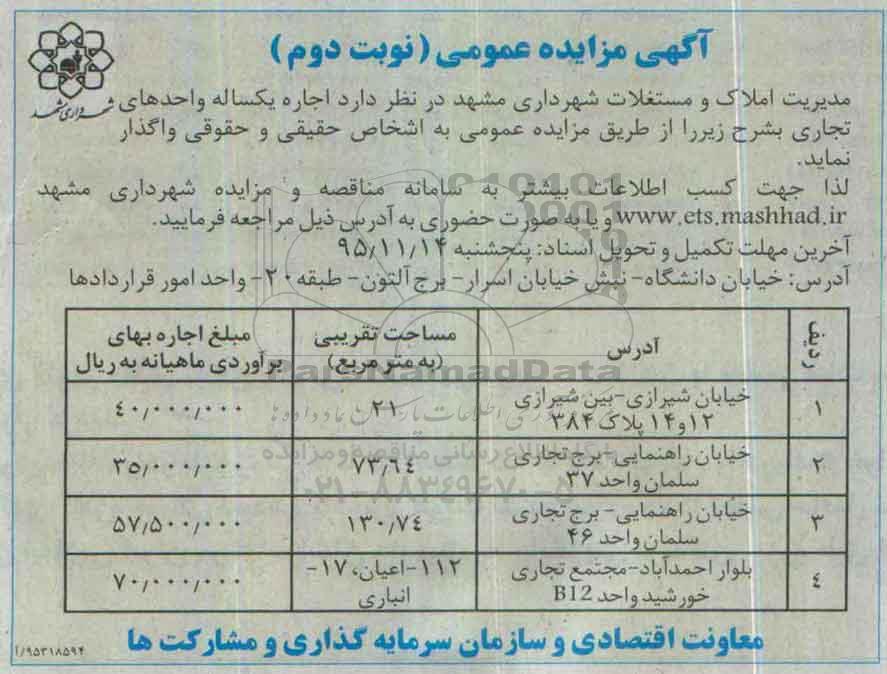 آگهی مزایده عمومی (نوبت دوم)
شهرداری مشهد
مدیریت املاک و مستغلات شهرداری مشهد در نظر دارد اجاره یکساله واحدهای
تجاری بشرح زیررا از طریق مزایده عمومی به اشخاص حقیقی و حقوقی واگذار
نماید.
لذا جهت کسب اطلاعات بیشتر به سامانه مناقصه و مزایده شهرداری مشهد
www.ets.mashhad.ir و یا به صورت حضوری به آدرس ذیل مراجعه فرمایید.
آخرین مهلت تکمیل و تحویل اسناد: پنجشنبه ۹۵/۱۱/۱۴
آدرس: خیابان دانشگاه- نبش خیابان اسرار- برج آلتون- طبقه ۲۰- واحد امور قراردادها
ردیف	آدرس	مساحت تقریبی (به متر مربع)	مبلغ اجاره بهای برآوردی ماهیانه به ریال
۱	خیابان شیرازی-بین شیرازی ۱۲و۱۴ پلاک ۳۸۴	۲۱	۴۰/۰۰۰/۰۰۰
۲	خیابان راهنمایی-برج تجاری سلمان واحد ۳۷	۷۳/۶۴	۳۵/۰۰۰/۰۰۰
۳	خیابان راهنمایی- برج تجاری سلمان واحد ۴۶	۱۳۰/۷۴	۵۷/۵۰۰/۰۰۰
۴	بلوار احمدآباد-مجتمع تجاری خورشید واحد B12	۱۱۲-اعیان، ۱۷- انباری	۷۰/۰۰۰/۰۰۰
ParsNamadData
پایگاه اطلاع رسانی مناقصه و مزایده
۰۲۱-۸۸۳۴۹۶۷۰-۵
معاونت اقتصادی و سازمان سرمایه گذاری و مشارکت ها
۹۵۳۱۸۵۹۴/آ